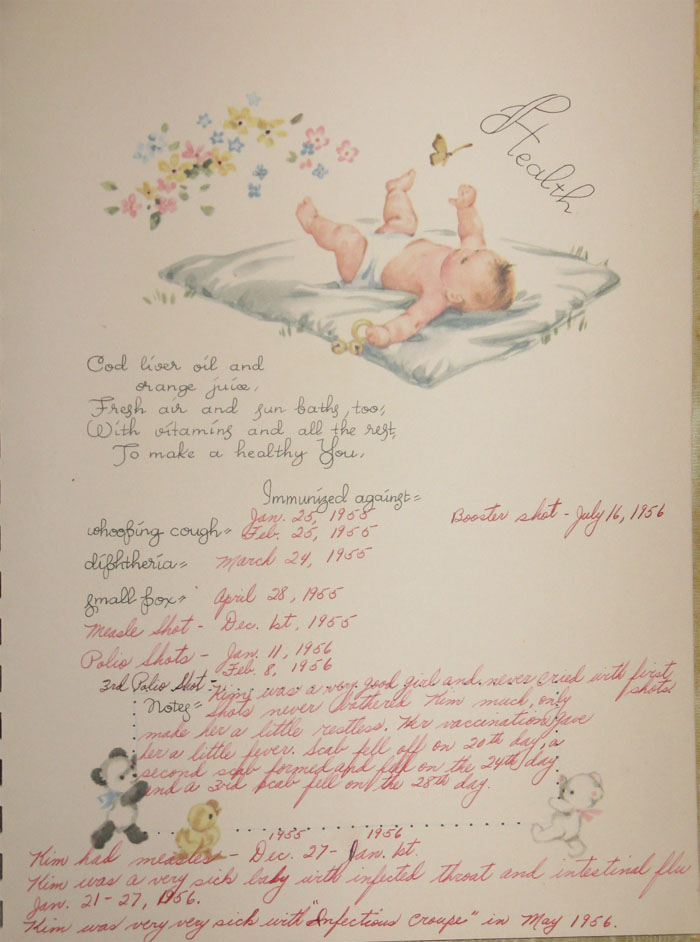 Health
Cod liver oil and
orange juice,
Fresh air and sun baths, too;
With vitamins and all the rest,
To make a healthy You.
Immunized against=
Jan. 25, 1955
whooping cough= Feb. 25, 1955
Booster shot - July 16, 1956
diphtheria= March 24, 1955
small pox= April 28, 1955
Measle Shot - Dec. 1st, 1955
Polio Shots - Jan. 11, 1956
Feb. 8, 1956
3rd Polio Shot -
Notes= Kim was a very good girl and never cried with first shots
Shots never bothered Kim much, only
made her a little restless. Her vaccination gave
her a little fever. Scab fell off on 20th day, a
second scab formed and fell on the 24th day
and a 3rd scab fell on the 28th day.
1955 1956
Kim had measles - Dec. 27 - Jan. 1st.
Kim was a very sick baby with infected throat and intestinal flu
Jan. 21 - 27, 1956.
Kim was very very sick with "Infectious Croupe" in May 1956.